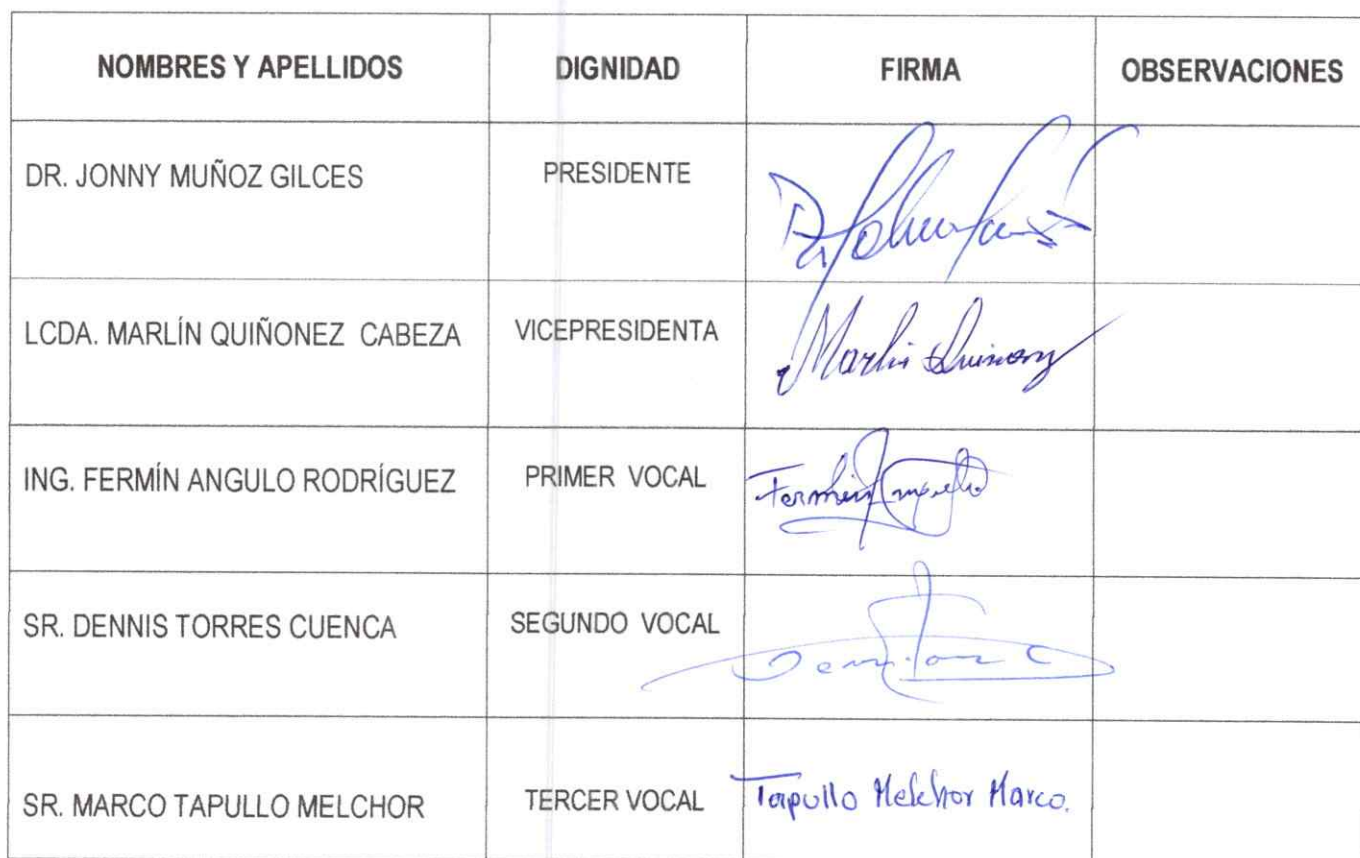 NOMBRES Y APELLIDOS DIGNIDAD FIRMA OBSERVACIONES
DR. JONNY MUÑOZ GILCES PRESIDENTE
LCDA. MARLÍN QUIÑONEZ CABEZA VICEPRESIDENTA Marlin
ING. FERMÍN ANGULO RODRÍGUEZ PRIMER VOCAL Fermin
SR. DENNIS TORRES CUENCA SEGUNDO VOCAL
SR. MARCO TAPULLO MELCHOR TERCER VOCAL Tapullo Melchor Marco.